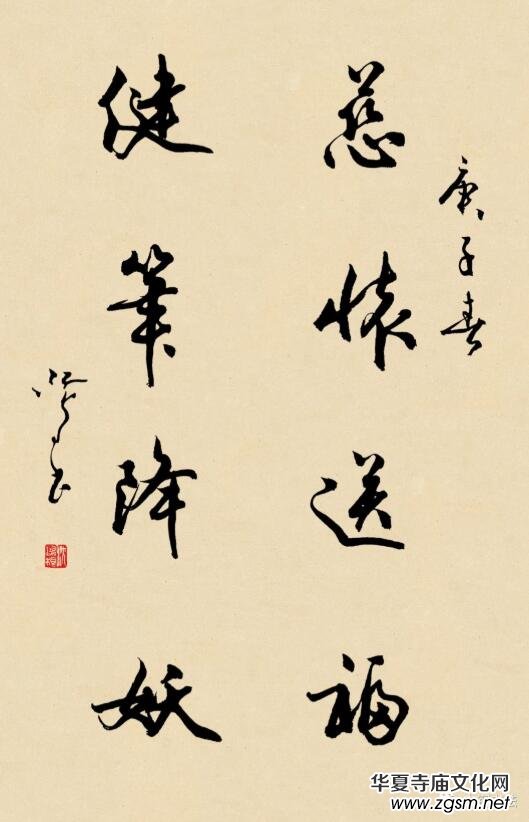 庚子春
慈懷送福
健筆降妖
华夏寺庙文化网
www.zgsm.net